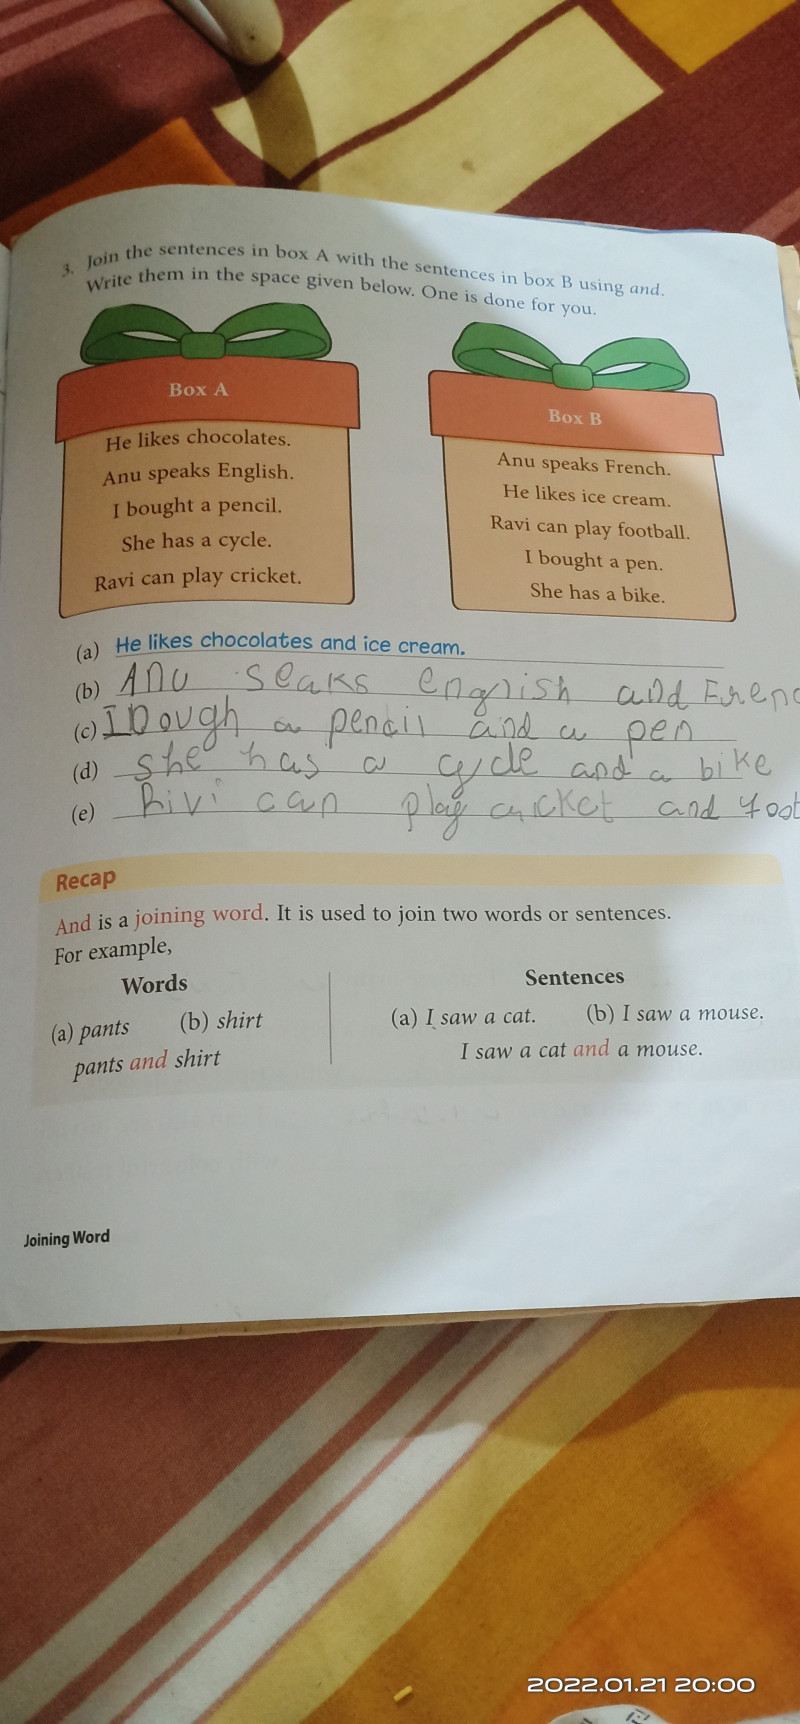 3. Join the sentences in box A with the sentences in box B using and.
Write them in the space given below. One is done for you.
Box A
He likes chocolates.
Anu speaks English.
I bought a pencil.
She has a cycle.
Ravi can play cricket.
Box B
Anu speaks French.
He likes ice cream.
Ravi can play football.
I bought a pen.
She has a bike.
(a) He likes chocolates and ice cream.
(b) Anu seaks english and Frenc
(c) I bough a pencil and a pen
(d) she has a cycle and a bike
(e) Rivi can play cricket and foot
Recap
And is a joining word. It is used to join two words or sentences.
For example,
Words
(a) pants (b) shirt
pants and shirt
Sentences
(a) I saw a cat. (b) I saw a mouse.
I saw a cat and a mouse.
Joining Word
2022.01.21 20:00